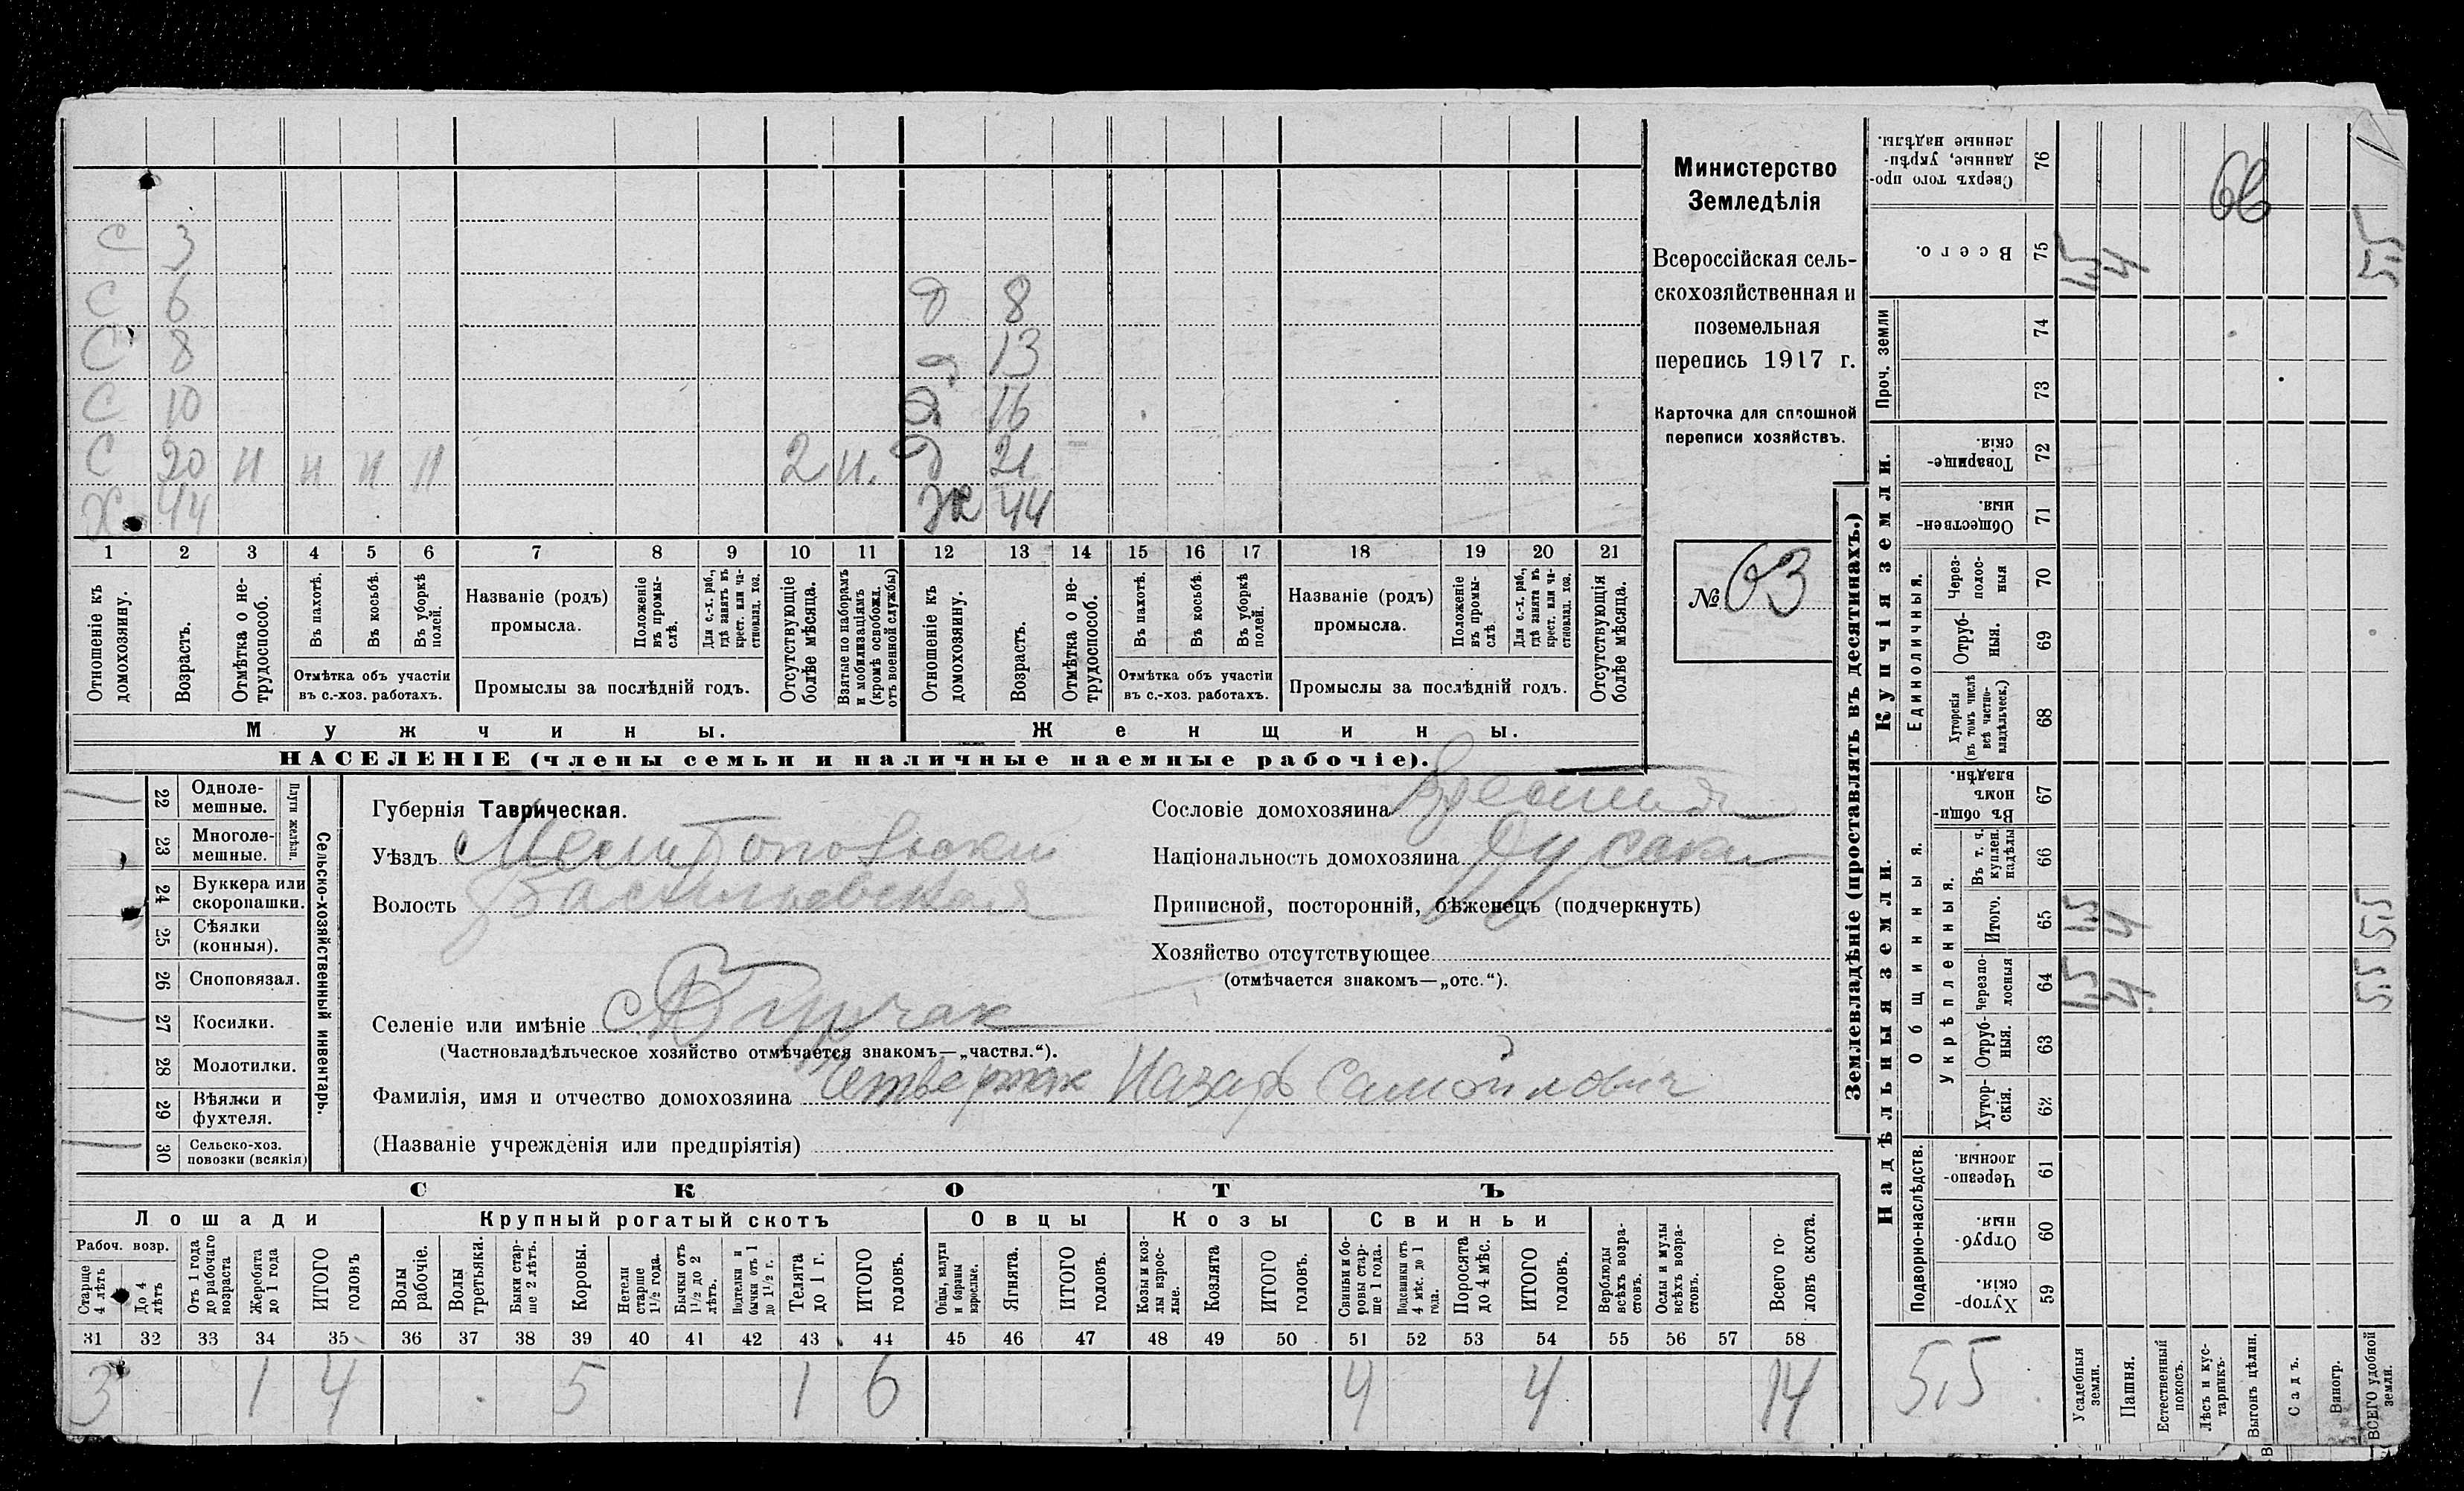 Министерство
Земледѣлія
Всероссійская сель-
скохозяйственная и
поземельная
перепись 1917 г.
Карточка для сплошной
переписи хозяйствъ.
№ 63
66
С 3
С 6 д 8
С 8 д 13
С 10 д 16
С 20 н н н н 2 н. д 21
Х 44 Ж 44
1 2 3 4 5 6 7 8 9 10 11 12 13 14 15 16 17 18 19 20 21
Отношеніе къ домохозяину.
Возрастъ.
Отмѣтка о не-трудоспособ.
Въ пахотѣ.
Въ косьбѣ.
Въ уборкѣ полей.
Отмѣтка объ участіи
въ с.-хоз. работахъ.
Названіе (родъ)
промысла.
Положеніе въ промы-слѣ.
Для с.-х. раб., гдѣ занятъ въ крест. или ча-стновлад. хоз.
Промыслы за послѣдній годъ.
Отсутствующіе болѣе мѣсяца.
Взятые по наборамъ и мобилизаціямъ (кромѣ освобожд. отъ военной службы)
Отношеніе къ домохозяину.
Возрастъ.
Отмѣтка о не-трудоспособ.
Въ пахотѣ.
Въ косьбѣ.
Въ уборкѣ полей.
Отмѣтка объ участіи
въ с.-хоз. работахъ.
Названіе (родъ)
промысла.
Положеніе въ промы-слѣ
Для с.-х. раб., гдѣ занята въ крест. или ча-стновлад. хоз.
Промыслы за послѣдній годъ.
Отсутствующія болѣе мѣсяца.
Мужчины.
Женщины.
НАСЕЛЕНІЕ (члены семьи и наличные наемные рабочіе).
22 Однолемешные.
23 Многолемешные.
Плуги желѣзн.
24 Буккера или скоропашки.
25 Сѣялки (конныя).
26 Сноповязал.
27 Косилки.
28 Молотилки.
29 Вѣялки и фухтеля.
30 Сельско-хоз. повозки (всякія)
Сельско-хозяйственный инвентарь.
Губернія Таврическая.
Уѣздъ Мелитопольскій
Волость Васильевская
Селеніе или имѣніе с. Бурчак
(Частновладѣльческое хозяйство отмѣчается знакомъ—„частвл.“).
Фамилія, имя и отчество домохозяина Четвертак Назар Самойлович
(Названіе учрежденія или предпріятія)
Сословіе домохозяина
Національность домохозяина
Приписной, посторонній, бѣженецъ (подчеркнуть)
Хозяйство отсутствующее
(отмѣчается знакомъ—„отс.“).
СКОТЪ
Лошади
Крупный рогатый скотъ
Овцы
Козы
Свиньи
Рабоч. возр.
Старше 4 лѣтъ
До 4 лѣтъ
Отъ 1 года до рабочаго возраста
Жеребята до 1 года
ИТОГО головъ
Волы рабочіе.
Волы третьяки.
Быки стар-ше 2 лѣтъ.
Коровы.
Нетели старше 1½ года.
Бычки отъ 1½ до 2 лѣтъ.
Подтелки и бычки отъ 1 до 1½ г.
Телята до 1 г.
ИТОГО головъ.
Овцы, валухи и бараны взрослые.
Ягнята.
ИТОГО головъ.
Козы и коз-лы взрос-лые.
Козлята
ИТОГО головъ.
Свиньи и бо-ровы стар-ше 1 года.
Подсвинки отъ 4 мѣс. до 1 года.
Поросята до 4 мѣс.
ИТОГО головъ.
Верблюды всѣхъ возра-стовъ.
Ослы и мулы всѣхъ возра-стовъ.
Всего го-ловъ скота.
31 32 33 34 35 36 37 38 39 40 41 42 43 44 45 46 47 48 49 50 51 52 53 54 55 56 57 58
3 1 4 5 1 6 4 4 14
Землевладѣніе (проставлять въ десятинахъ.)
Купчія земли.
Надѣльныя земли.
Сверхъ того про-данные, укрѣп-ленные надѣлы. 76
Всего. 75
Проч. земли 74 73
Товарище-скія. 72
Обществен-ныя. 71
Единоличныя.
Через-полос-ныя 70
Отруб-ныя. 69
Хуторскія (въ томъ числѣ всѣ частно-владѣльческ.) 68
Общинныя.
Въ общин-номъ владѣн. 67
Укрѣпленныя.
Въ т. ч. куплен. надѣлы 66
Итого. 65
Черезпо-лосныя 64
Отруб-ныя. 63
Хутор-скія. 62
Подворно-наслѣдств.
Черезпо-лосныя. 61
Отруб-ныя. 60
Хутор-скія. 59
5,5
Усадебныя земли.
Пашня.
Естественный покосъ.
Лѣсъ и кус-тарникъ.
Выгонъ цѣлин.
Садъ.
Виногр.
ВСЕГО удобной земли.
1,5 4 5,5
1,5 4 5,5
1,5 4 5,5